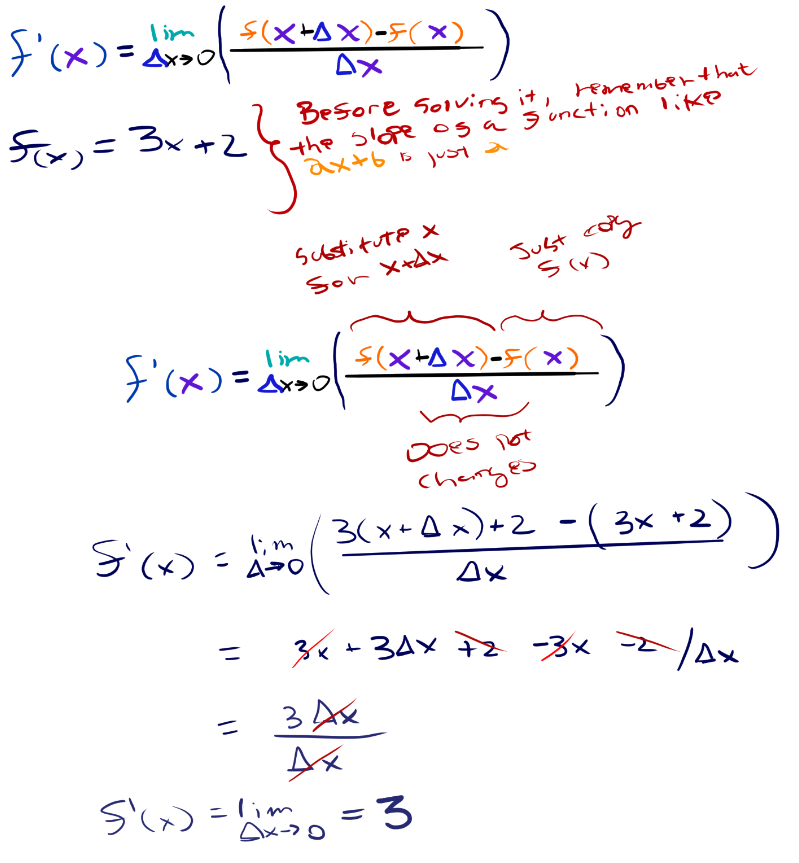 f'(x) = lim Δx→0 ( f(x+Δx)-f(x) / Δx )
f(x) = 3x+2
Before solving it, remember that
the slope of a function like
ax+b is just a
substitute x
for x+Δx
Just copy
f(x)
f'(x) = lim Δx→0 ( f(x+Δx)-f(x) / Δx )
Does not
changes
f'(x) = lim Δ→0 ( 3(x+Δx)+2 -(3x+2) / Δx )
= 3x + 3Δx +2 -3x -2 /Δx
= 3Δx / Δx
f'(x) = lim Δx→0 = 3